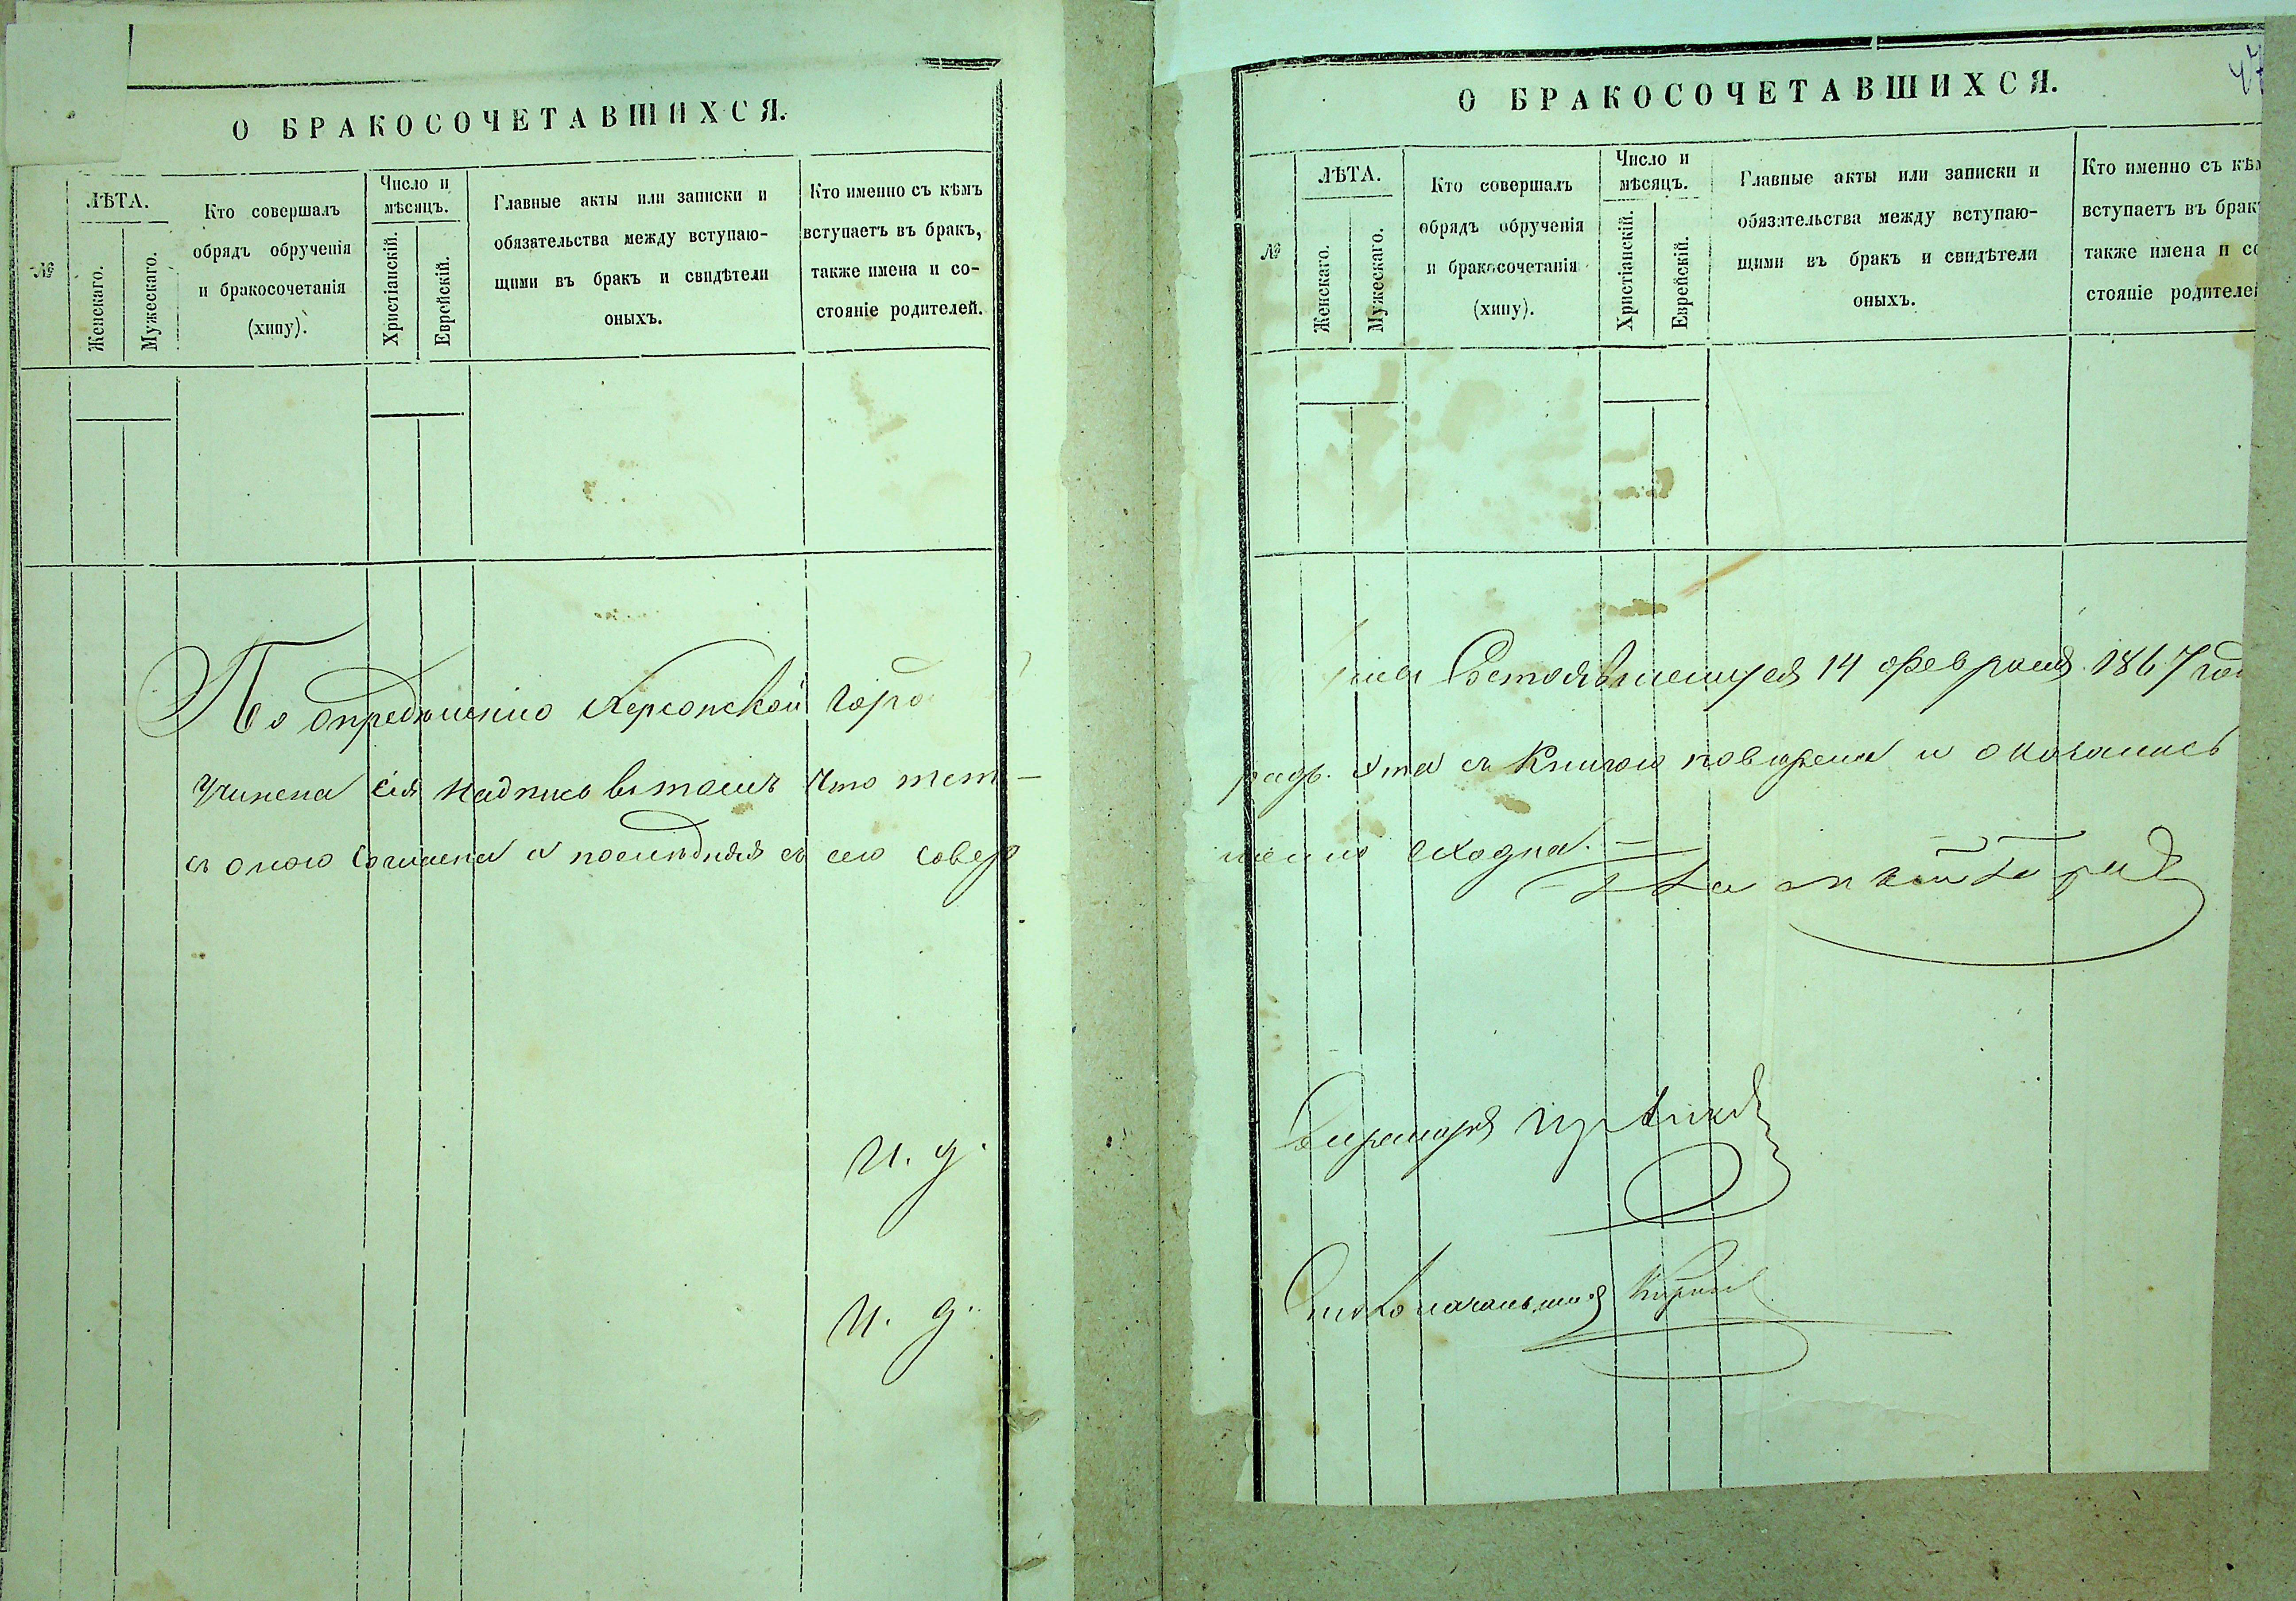 О БРАКОСОЧЕТАВШИХСЯ.
№
ЛѢТА.
Женскаго.
Мужескаго.
Кто совершалъ
обрядъ обрученія
и бракосочетанія
(хипу).
Число и
мѣсяцъ.
Христіанскій.
Еврейскій.
Главные акты или записки и
обязательства между вступаю-
щими въ бракъ и свидѣтели
оныхъ.
Кто именно съ кѣмъ
вступаетъ въ бракъ,
также имена и со-
стояніе родителей.
По опредѣленію Херсонской Горо
учинена сія надпись въ томъ что тет-
съ оною согласна и последняя съ сею совер
И. д.
И. д.
47
О БРАКОСОЧЕТАВШИХСЯ.
№
ЛѢТА.
Женскаго.
Мужескаго.
Кто совершалъ
обрядъ обрученія
и бракосочетанія
(хипу).
Число и
мѣсяцъ.
Христіанскій.
Еврейскій.
Главные акты или записки и
обязательства между вступаю-
щими въ бракъ и свидѣтели
оныхъ.
Кто именно съ кѣм
вступаетъ въ брак
также имена и со
стояніе родителей
Состоявшемуся 14 февраля 1867 год
радь. эта съ Книгою поверена и оказалась
шенно сходна.
Секретарь
Столоначальникъ